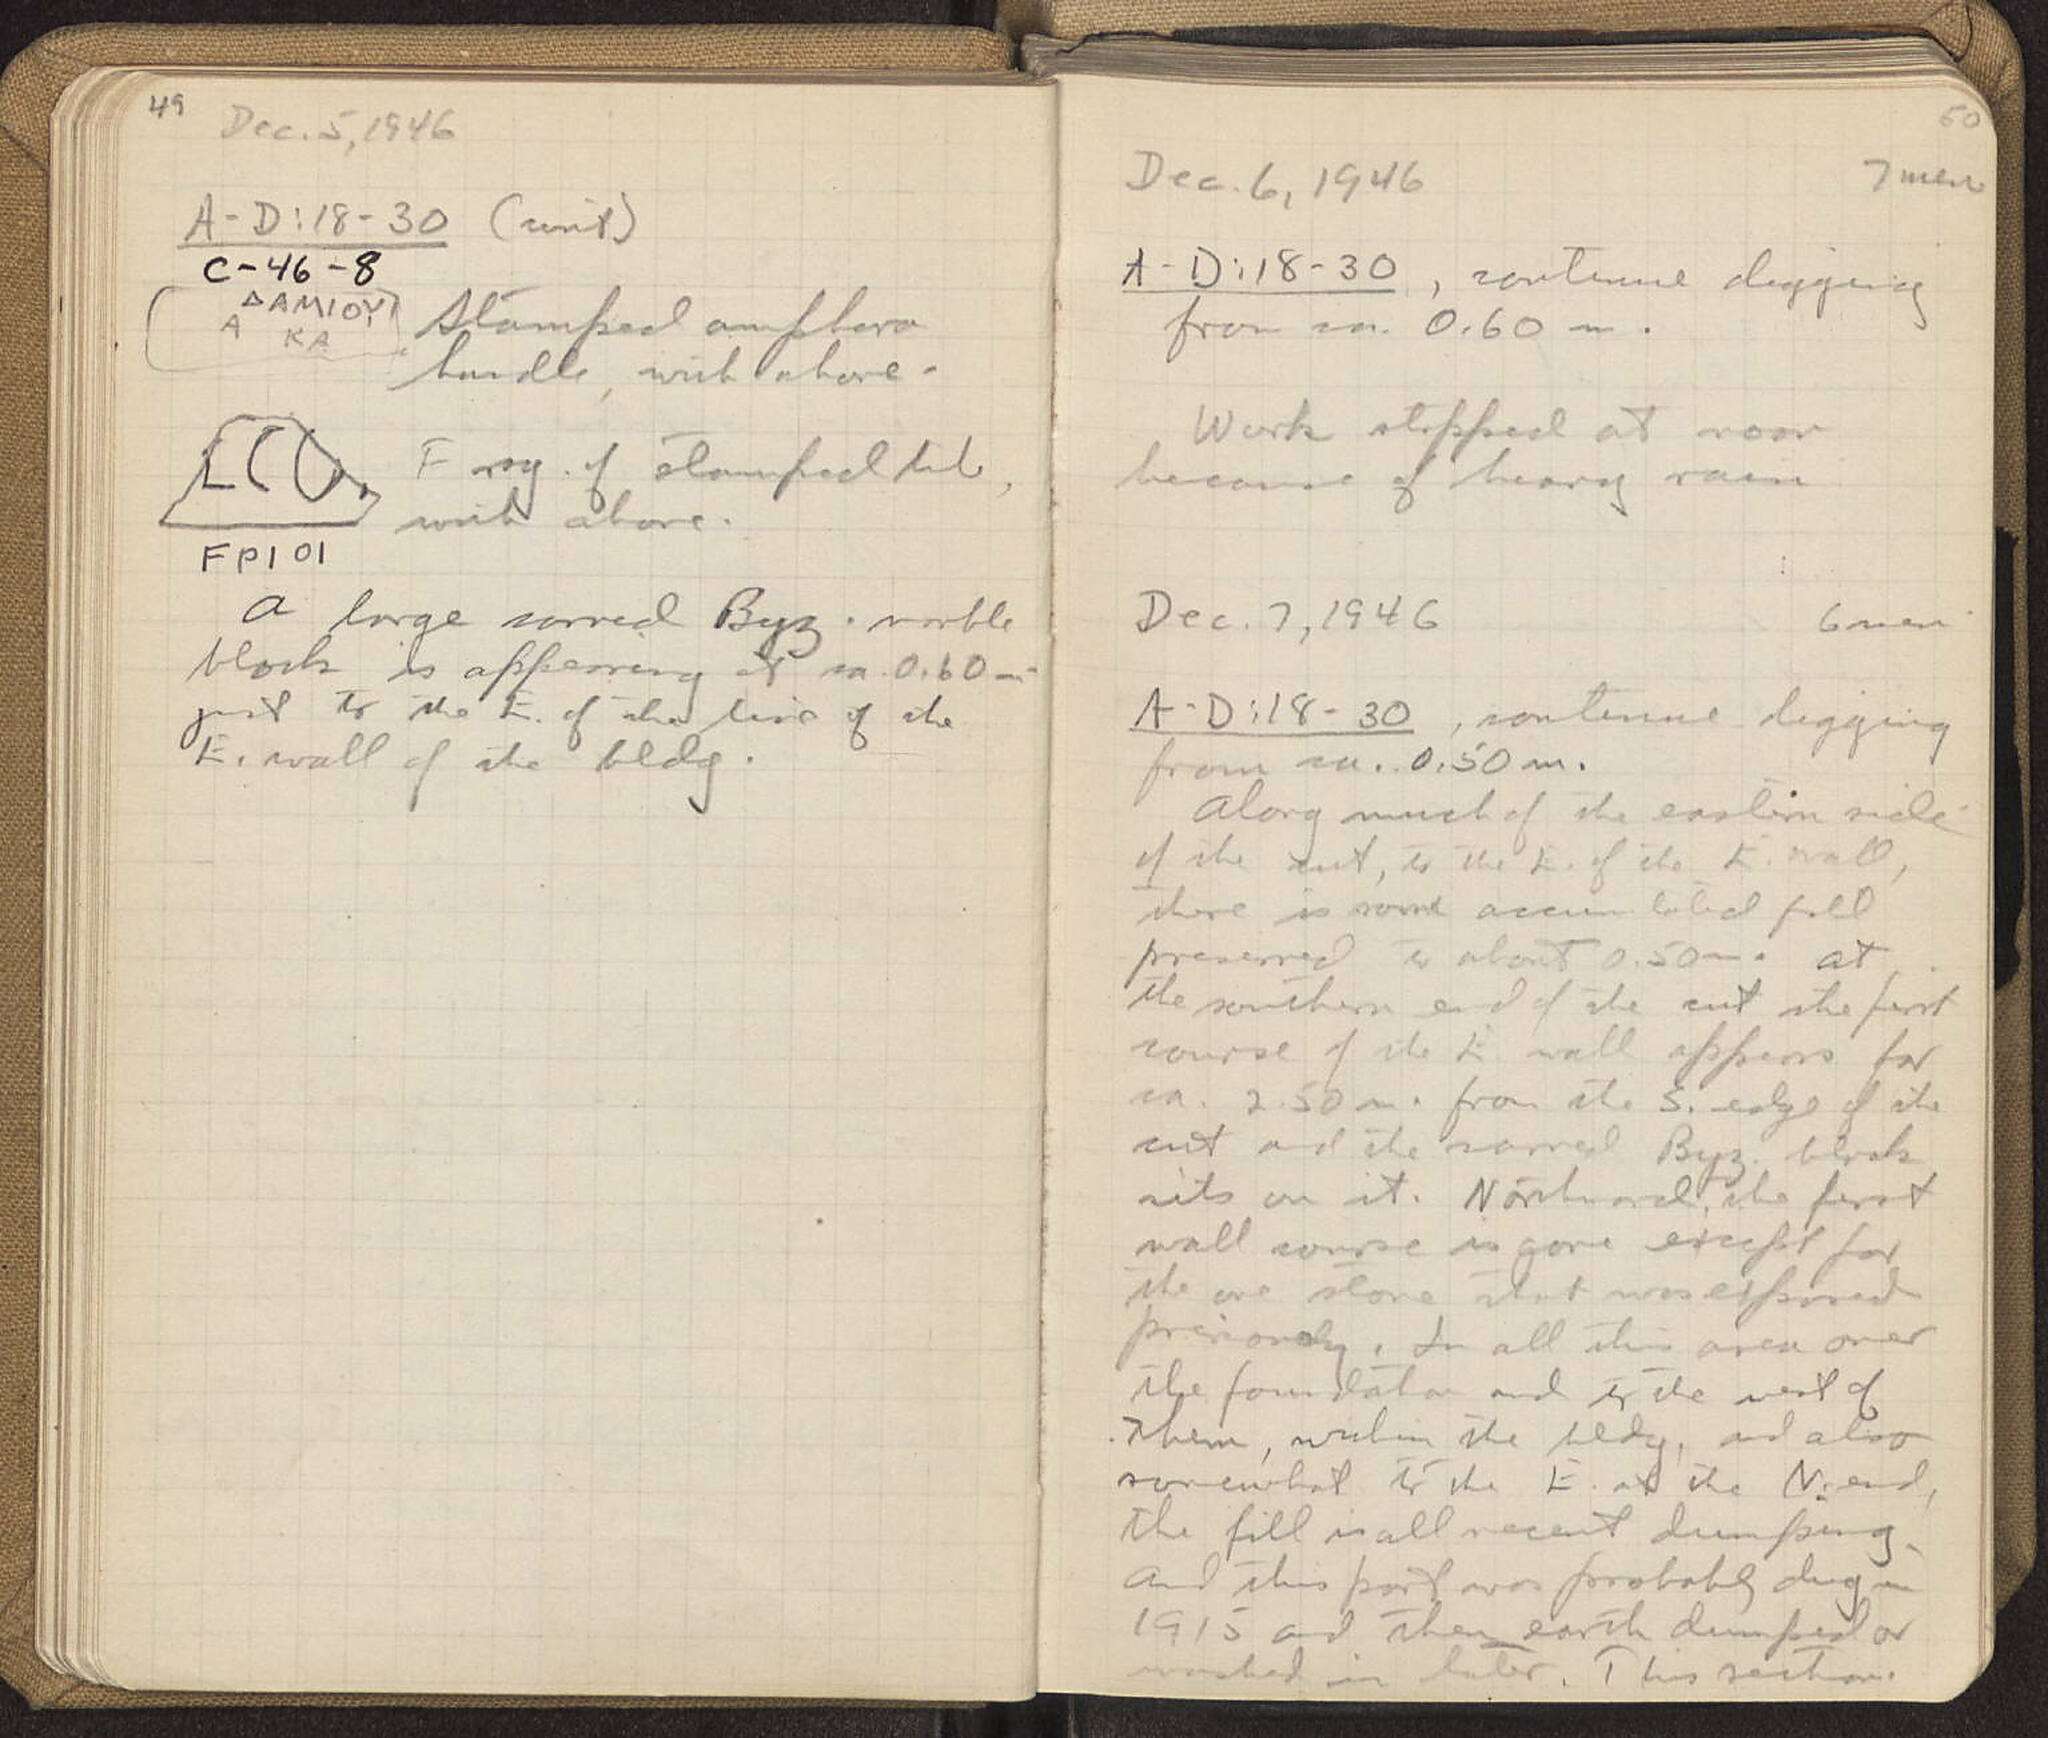 49
Dec. 5, 1946
A-D:18-30 (cont)
C-46-8
ΔAMIOY
A KA
Stamped amphora
handle, with above.
Frag. of stamped tile,
with above.
FP101
A large carved Byz. marble
block is appearing at ca. 0.60 m
just to the E. of the line of the
E. wall of the bldg.
50
Dec. 6, 1946 7 men
A-D:18-30, continue digging
from ca. 0.60 m.
Work stopped at noon
because of heavy rain
Dec. 7, 1946 6 men
A-D:18-30, continue digging
from ca. 0.50 m.
Along much of the eastern side
of the cut, to the E. of the E. wall,
there is some accumulated fill
preserved to about 0.50 m. At
the southern end of the cut the first
course of the E. wall appears for
ca. 2.50 m. from the S. edge of the
cut and the carved Byz. block
sits on it. Northward, the first
wall course is gone except for
the one stone that was exposed
previously. In all this area over
the foundation and to the west of
them, within the bldg, and also
somewhat to the E. at the N. end,
the fill is all recent dumping.
And this part was probably dug in
1915 and then earth dumped or
washed in later. This section